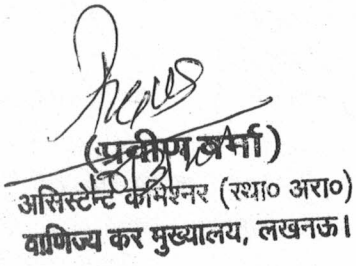 (प्रवीण वर्मा)
असिस्टेन्ट कमिश्नर (स्था० अरा०)
वाणिज्य कर मुख्यालय, लखनऊ।